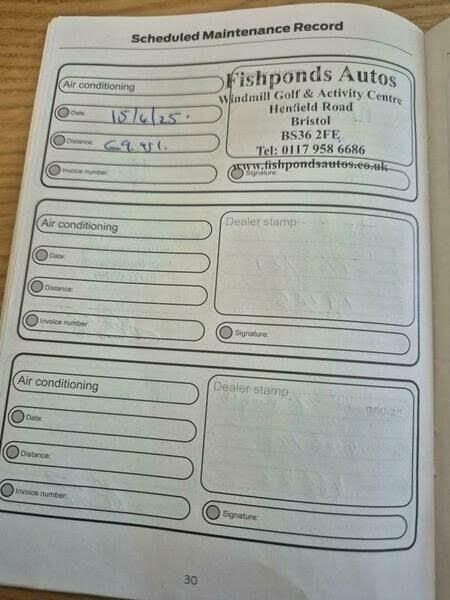 Scheduled Maintenance Record
Air conditioning
Date: 15/4/25.
Distance: 69.451.
Invoice number:
Fishponds Autos
Windmill Golf & Activity Centre
Henfield Road
Bristol
BS36 2FE
Tel: 0117 958 6686
www.fishpondsautos.co.uk
Signature:
Air conditioning
Date:
Distance:
Invoice number:
Dealer stamp
Signature:
Air conditioning
Date:
Distance:
Invoice number:
Dealer stamp
Signature:
30